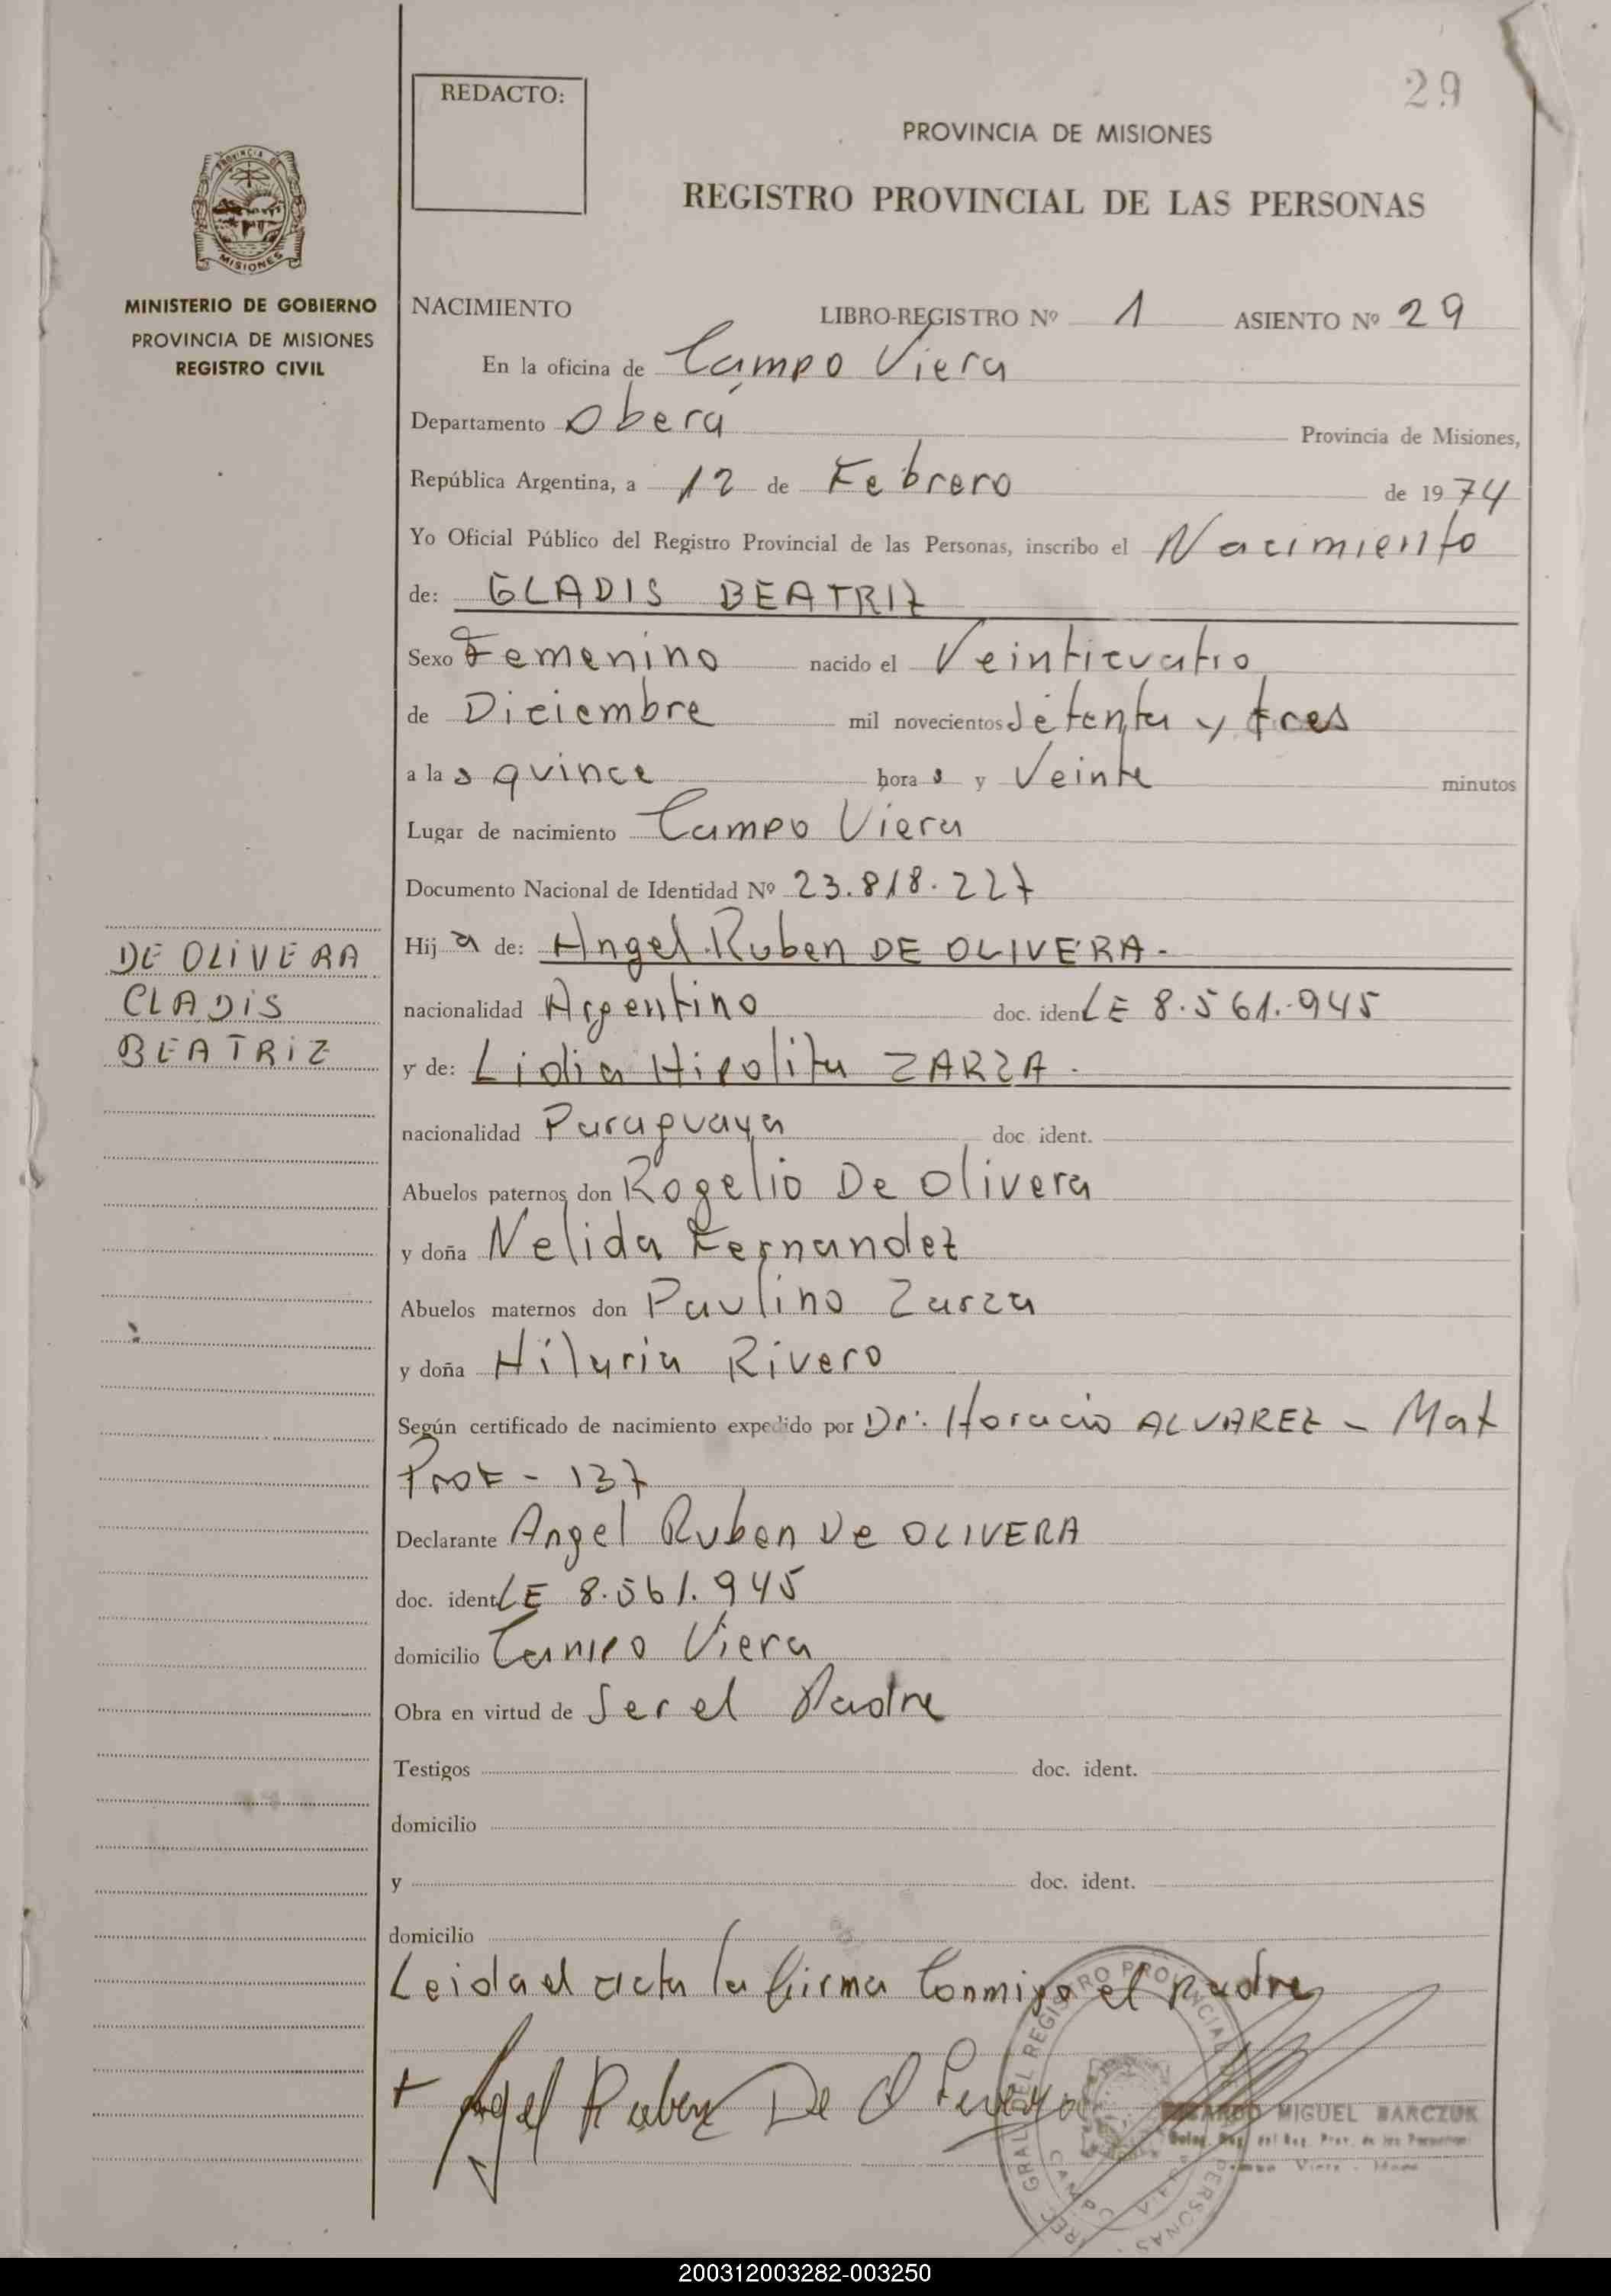 29
REDACTO:
PROVINCIA DE MISIONES
REGISTRO PROVINCIAL DE LAS PERSONAS
PROVINCIA DE
MISIONES
MINISTERIO DE GOBIERNO
PROVINCIA DE MISIONES
REGISTRO CIVIL
NACIMIENTO LIBRO-REGISTRO Nº 1 ASIENTO Nº 29
En la oficina de Campo Viera
Departamento Oberá Provincia de Misiones,
República Argentina, a 12 de Febrero de 1974
Yo Oficial Público del Registro Provincial de las Personas, inscribo el Nacimiento
de: GLADIS BEATRIZ
Sexo Femenino nacido el Veinticuatro
de Diciembre mil novecientos setenta y tres
a las quince horas y Veinte minutos
Lugar de nacimiento Campo Viera
Documento Nacional de Identidad Nº 23.818.227
DE OLIVERA
CLADIS
BEATRIZ
Hija de: Angel Ruben DE OLIVERA.-
nacionalidad Argentino doc. iden LE 8.561.945
y de: Lidia Hipolita ZARZA.
nacionalidad Paraguaya doc ident.
Abuelos paternos don Rogelio De Olivera
y doña Nelida Fernandez
Abuelos maternos don Paulino Zarza
y doña Hilaria Rivero
Según certificado de nacimiento expedido por Dr: Horacio ALVAREZ - Mat
Prof - 137
Declarante Angel Ruben De OLIVERA
doc. ident LE 8.561.945
domicilio Campo Viera
Obra en virtud de Ser el Padre
Testigos doc. ident.
domicilio
y doc. ident.
domicilio
Leida el acta la firma Conmigo el padre
+ Angel Ruben De O
REGISTRO PROVINCIAL
PERSONAS
MIGUEL BARCZUK